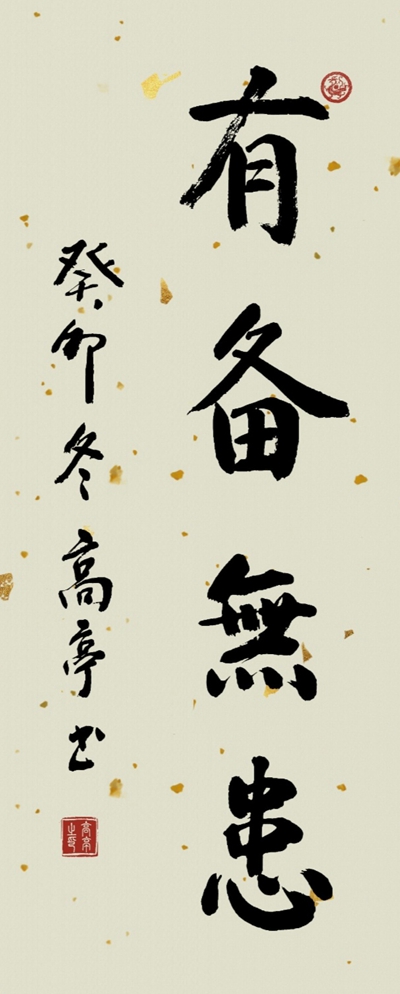 有备無患
癸卯冬高亭书
高亭之印